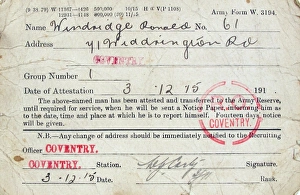 (9 33 79) W 11367—4498 500,000 10/15 H W V (P 1108)
Army Form W. 3194.
Name Windridge Ronald No. 61
Address 41 Widdrington Rd
COVENTRY.
Group Number 1
Date of Attestation 3 12 15 191 .
The above-named man has been attested and transferred to the Army Reserve,
until required for service, when he will be sent a Notice Paper, informing him
as to the date, time and place at which he is to report himself. Fourteen days, notice
will be given.
COVENTRY.
N.B.—Any change of address should be immediately notified to the Recruiting
Officer COVENTRY.
COVENTRY. Station. Signature.
3 - 12 - 15 Date. Rank.